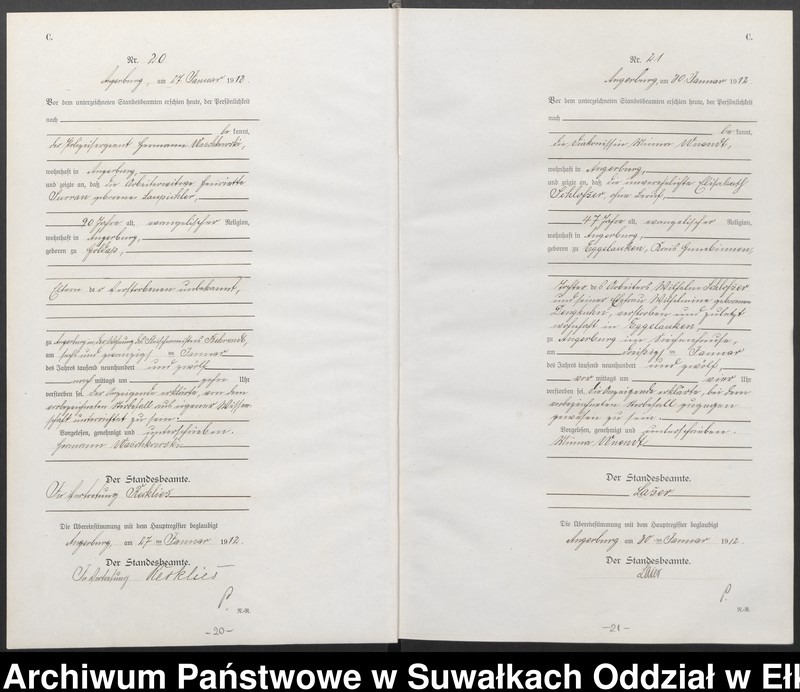 C.
Nr. 20
Angerburg, am 27 Januar 1912.
Vor dem unterzeichneten Standesbeamten erschien heute, der Persönlichkeit
nach
be kannt,
der Polizeisergeant Hermann Waschkowski,
wohnhaft in Angerburg,
und zeigte an, daß die Arbeiterwitwe Henriette
geborene
90 Jahre alt, evangelischer Religion,
wohnhaft in Angerburg,
geboren zu
Eltern der Verstorbenen unbekannt,
zu Angerburg in der Wohnung des
am sechs und zwanzigsten Januar
des Jahres tausend neunhundert und zwölf
nach mittags um zehn Uhr
verstorben sei. Der Anzeigende erklärte, von dem
vorbezeichneten Sterbefall aus eigener Wissen-
schaft unterrichtet zu sein.
Vorgelesen, genehmigt und unterschrieben.
Hermann Waschkowski
Der Standesbeamte.
In Vertretung Kerklies
Die Übereinstimmung mit dem Hauptregister beglaubigt
Angerburg, am 27 ten Januar 1912.
Der Standesbeamte.
In Vertretung Kerklies
P.
R.-R.
-20-
C.
Nr. 21
Angerburg, am 30 Januar 1912.
Vor dem unterzeichneten Standesbeamten erschien heute, der Persönlichkeit
nach
be kannt,
die Diakonissin Minna Wendt,
wohnhaft in Angerburg,
und zeigte an, daß die unverehelichte Elisabeth
Schlosser, ohne Beruf,
47 Jahre alt, evangelischer Religion,
wohnhaft in Angerburg,
geboren zu Eggelauken, Kreis Gumbinnen,
Tochter des Arbeiters Wilhelm Schlosser
und seiner Ehefrau Wilhelmine geborenen
verstorben und zuletzt
wohnhaft in Eggelauken
zu Angerburg im Siechenhause,
am dreißigsten Januar
des Jahres tausend neunhundert und zwölf,
vor mittags um vier Uhr
verstorben sei. Die Anzeigende erklärte, bei dem
vorbezeichneten Sterbefall zugegen
gewesen zu sein.
Vorgelesen, genehmigt und unterschrieben.
Minna Wendt
Der Standesbeamte.
Laser
Die Übereinstimmung mit dem Hauptregister beglaubigt
Angerburg am 30 ten Januar 1912.
Der Standesbeamte.
Laser
P.
R.-R.
-21-
Archiwum Państwowe w Suwałkach Oddział w Ełk